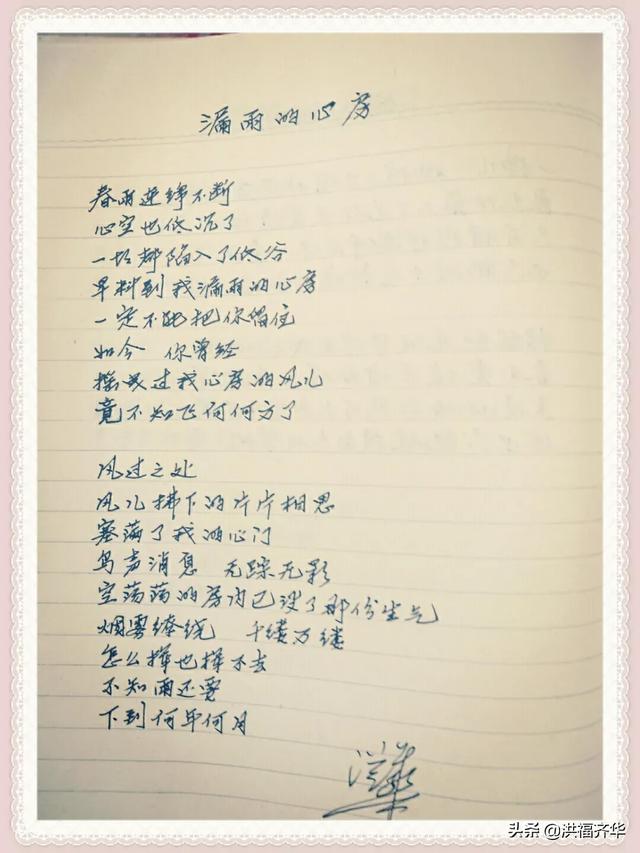 漏雨的心房
春雨连绵不断
心空也低沉了
一切都陷入了低谷
早料到我漏雨的心房
一定不能把你留住
如今 你曾经
摇曳过我心房的风儿
竟不知飞何何方了
风过之处
风儿拂下的片片相思
塞满了我的心门
鸟声消息 无踪无影
空荡荡的房内已没了那份生气
烟雾缭绕 千缕万缕
怎么挥也挥不去
不知雨还要
下到何年何月
洪华
头条 @洪福齐华